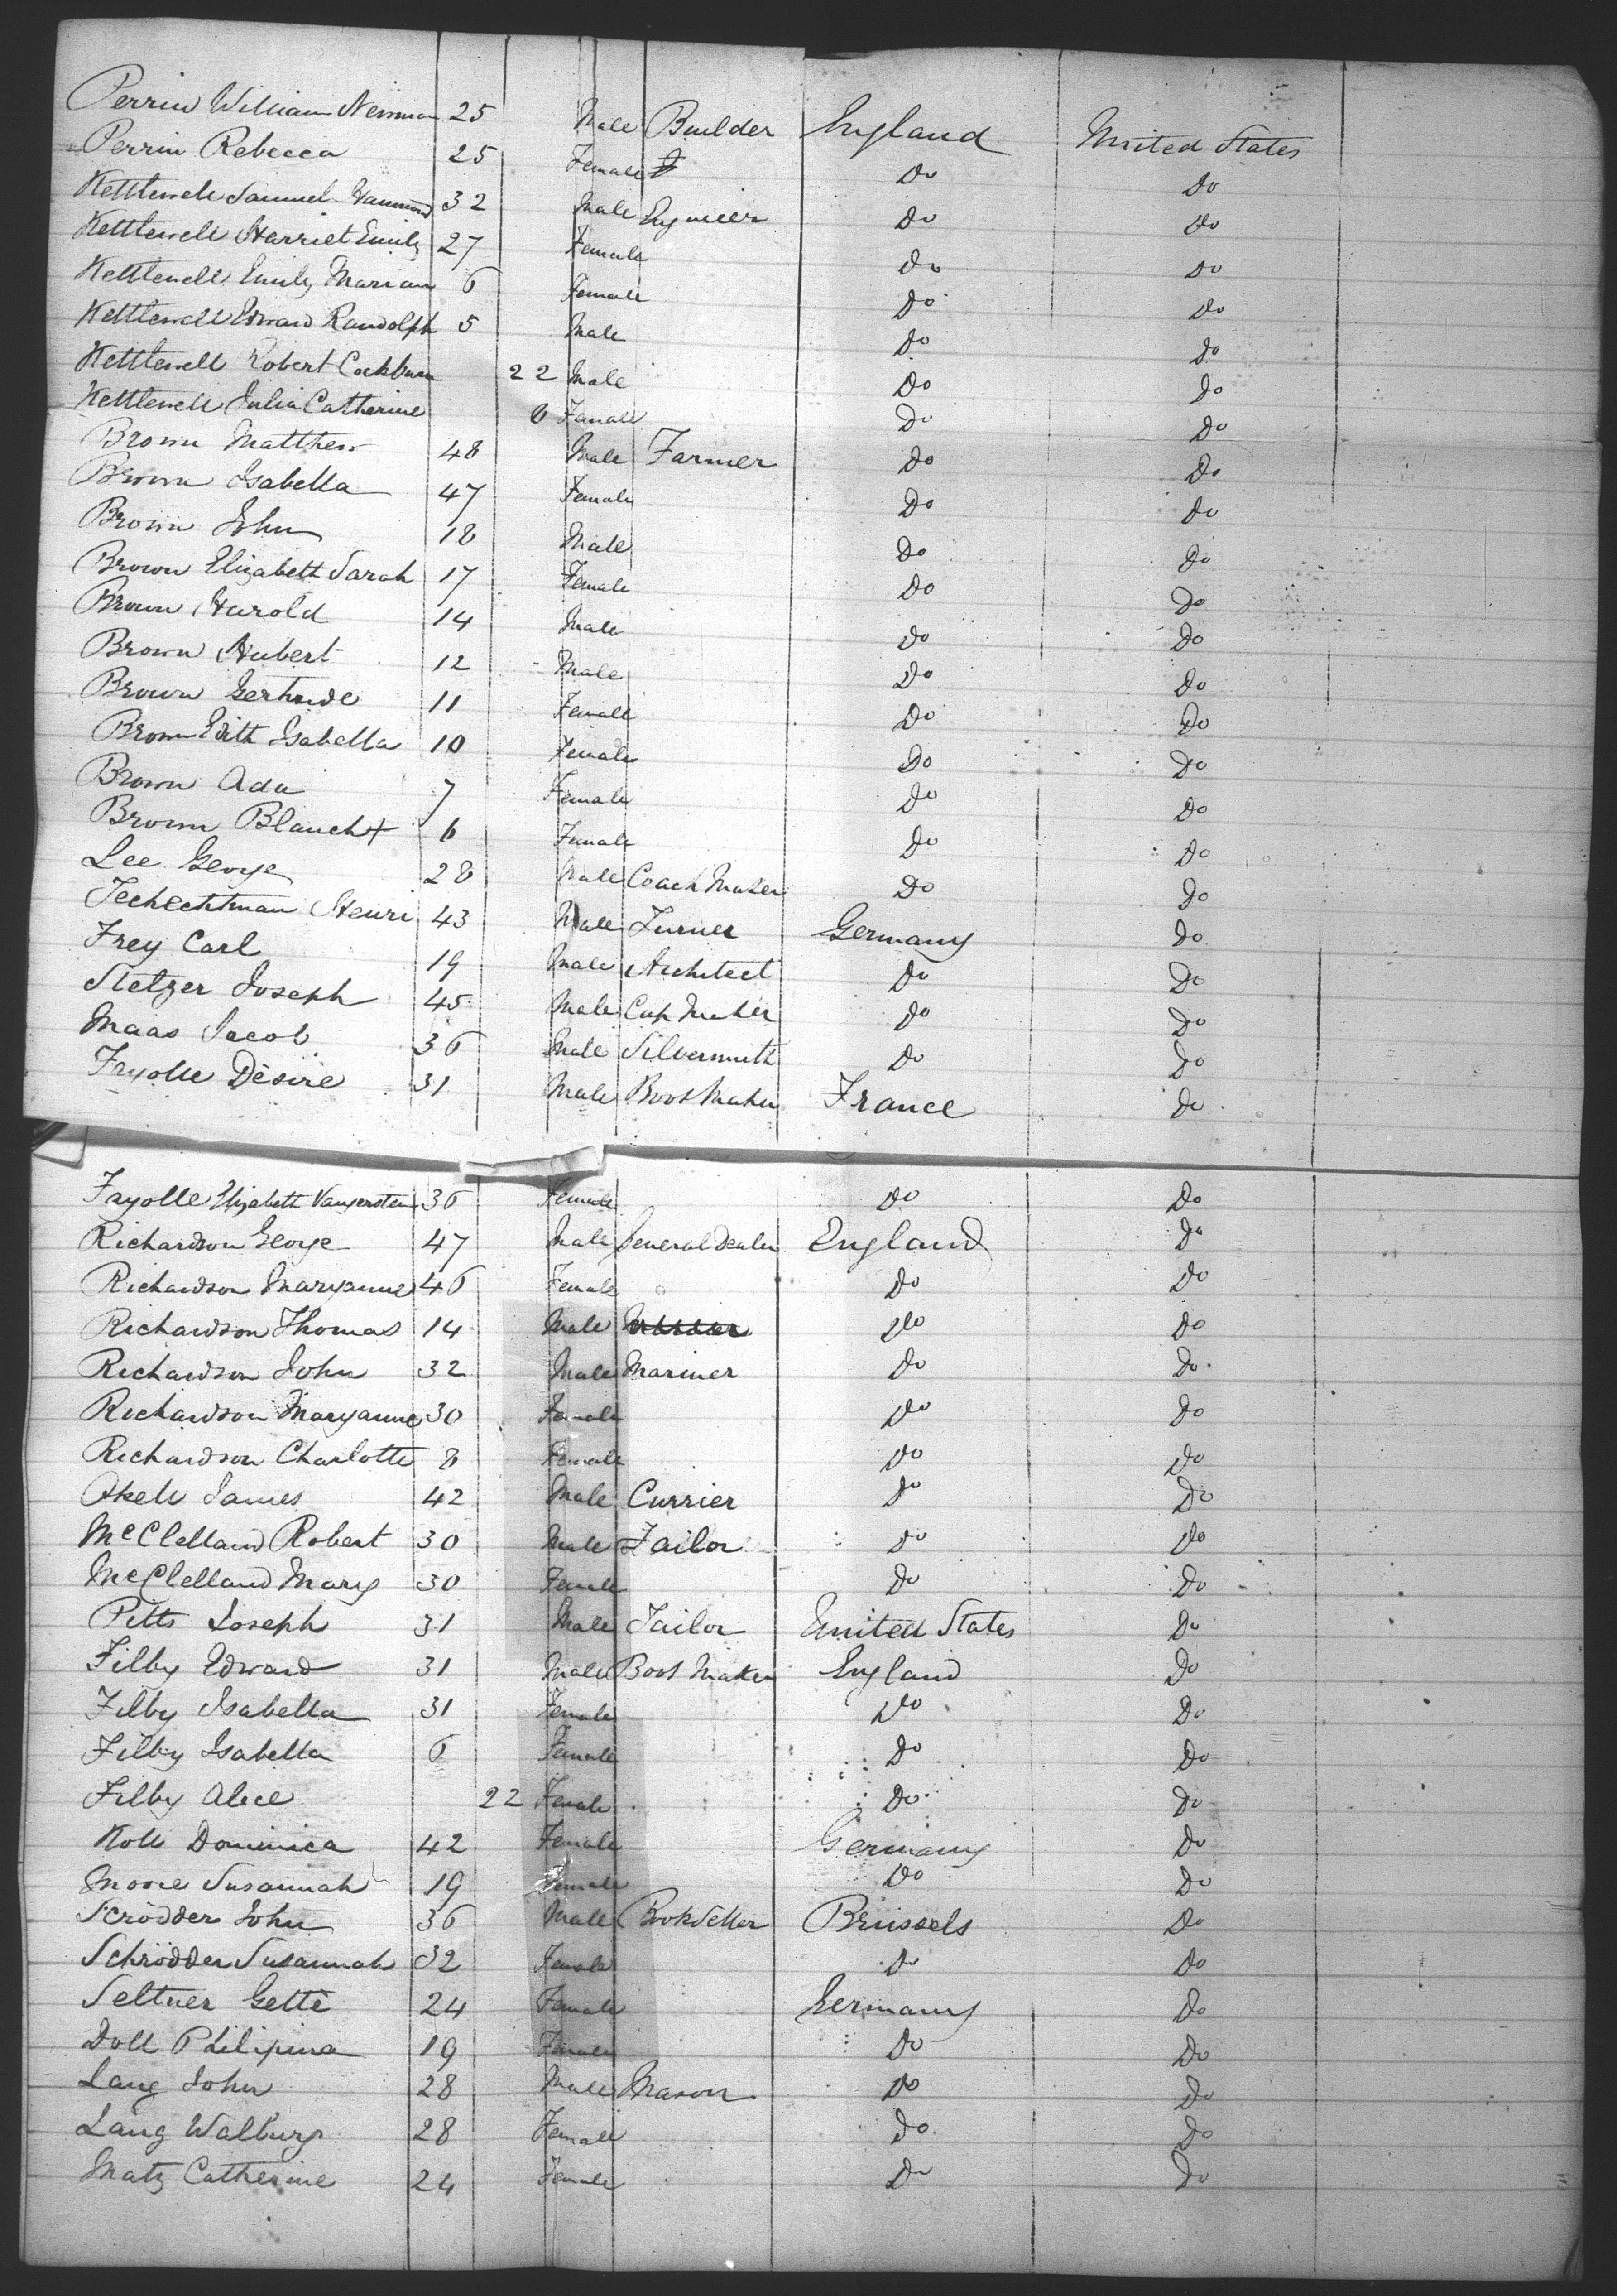 Perrin William Newman 25 Male Builder England United States
Perrin Rebecca 25 Female Do Do
Kettlewell Samuel Hammond 32 Male Engineer Do Do
Kettlewell Harriet Emily 27 Female Do Do
Kettlewell Emily Marian 6 Female Do Do
Kettlewell Edward Randolph 5 Male Do Do
Kettlewell Robert Cockburn 22 Male Do Do
Kettlewell Julia Catherine 6 Female Do Do
Brown Matthew 48 Male Farmer Do Do
Brown Isabella 47 Female Do Do
Brown John 18 Male Do Do
Brown Elizabeth Sarah 17 Female Do Do
Brown Harold 14 Male Do Do
Brown Hubert 12 Male Do Do
Brown Gertrude 11 Female Do Do
Brown Edith Isabella 10 Female Do Do
Brown Ada 7 Female Do Do
Brown Blanch 6 Female Do Do
Lee George 28 Male Coach Maker Do Do
Henri 43 Male Turner Germany Do
Frey Carl 19 Male Architect Do Do
Stetzer Joseph 45 Male Cap Maker Do Do
Maas Jacob 36 Male Silversmith Do Do
Fayolle Désiré 31 Male Boot Maker France Do
Fayolle Elizabeth 36 Female Do Do
Richardson George 47 Male General Dealer England Do
Richardson Maryanne 46 Female Do Do
Richardson Thomas 14 Male Do Do
Richardson John 32 Male Mariner Do Do
Richardson Maryanne 30 Female Do Do
Richardson Charlotte 8 Female Do Do
Akell James 42 Male Currier Do Do
McClelland Robert 30 Male Tailor Do Do
McClelland Mary 30 Female Do Do
Pitts Joseph 31 Male Tailor United States Do
Filby Edward 31 Male Boot Maker England Do
Filby Isabella 31 Female Do Do
Filby Isabella 6 Female Do Do
Filby Alice 22 Female Do Do
Koll Dominica 42 Female Germany Do
Moore Susannah 19 Female Do Do
Scrödder John 36 Male Book Seller Brussels Do
Schrödder Susannah 32 Female Do Do
Seltner Gette 24 Female Germany Do
Doll Philipina 19 Female Do Do
Lang John 28 Male Mason Do Do
Lang Walburg 28 Female Do Do
Matz Catherine 24 Female Do Do